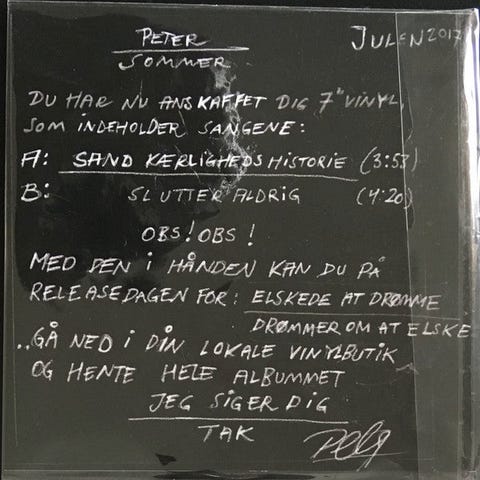 PETER
SOMMER
JULEN 2017
DU HAR NU ANSKAFFET DIG 7" VINYL,
SOM INDEHOLDER SANGENE:
A: SAND KÆRLIGHEDSHISTORIE (3:53)
B: SLUTTER ALDRIG (4:20)
OBS! OBS!
MED DEN I HÅNDEN KAN DU PÅ
RELEASEDAGEN FOR: ELSKEDE AT DRØMME
DRØMMER OM AT ELSKE
..GÅ NED I DIN LOKALE VINYLBUTIK
OG HENTE HELE ALBUMMET
JEG SIGER DIG
TAK